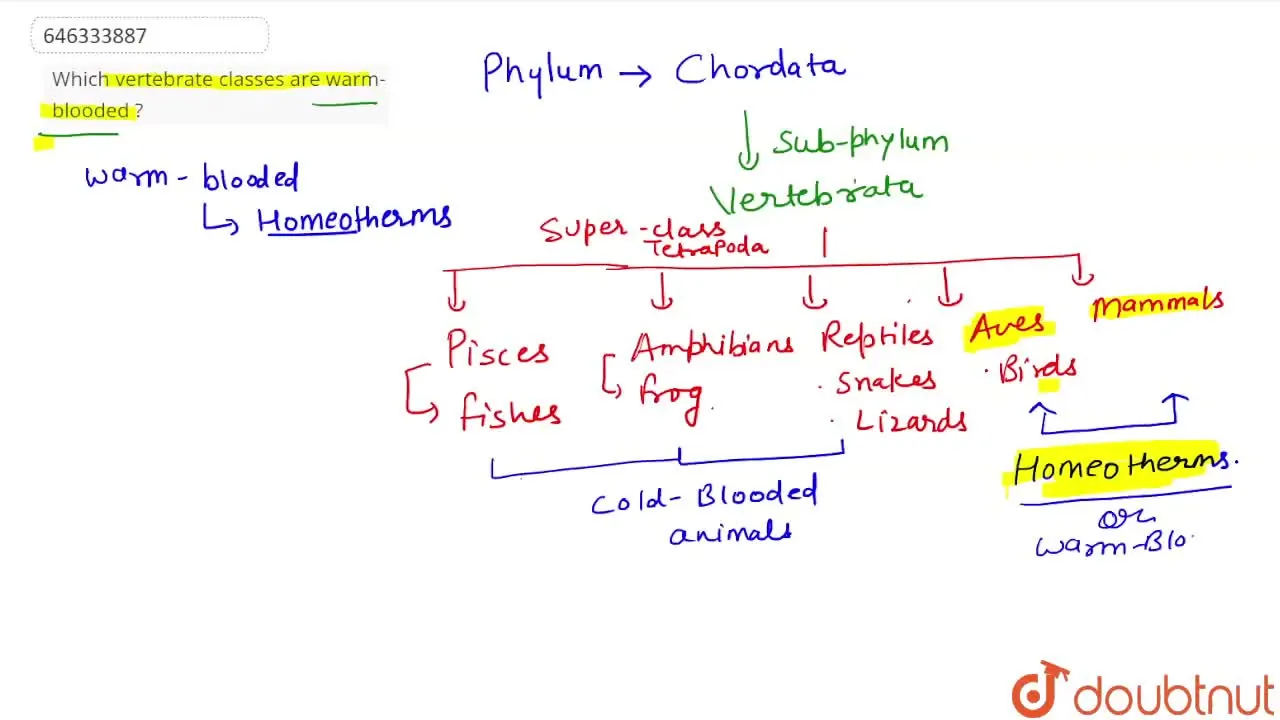 646333887
Which vertebrate classes are warm-
blooded ?
Phylum → Chordata
Sub-phylum
Vertebrata
warm - blooded
↳ Homeotherms
Super-class
Tetrapoda
Pisces
fishes
Amphibians
frog
Reptiles
. Snakes
. Lizards
Aves
. Birds
Mammals
Cold-Blooded
animals
Homeotherms.
or
warm-Blo
doubtnut